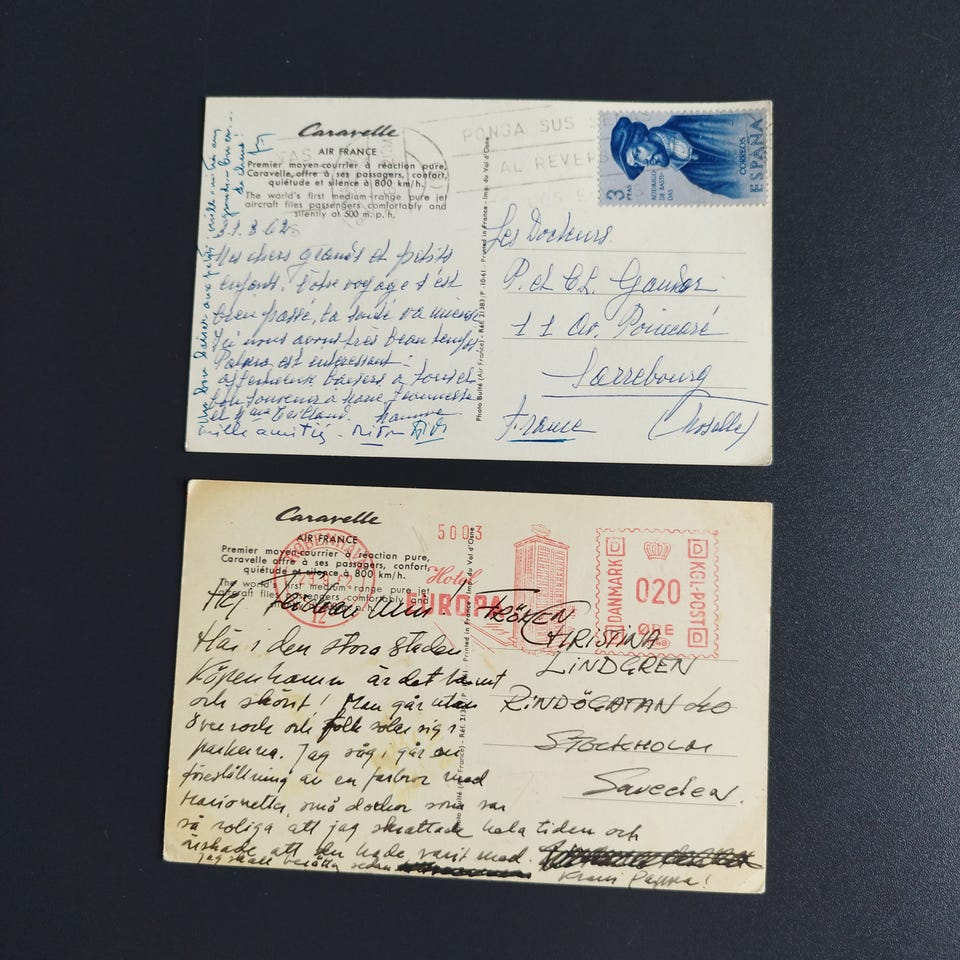 Caravelle
AIR FRANCE
Premier moyen-courrier à réaction pure,
Caravelle offre à ses passagers, confort,
quiétude et silence à 800 km/h.
The world's first medium-range pure jet
aircraft flies passengers comfortably and
silently at 500 m.p.h.
1.8.62
Mes chers grands et petits
enfants. Notre voyage s'est
bien passé, la santé va mieux
Ici nous avons très beau temps.
Palma est intéressant :
affectueux baisers à tous et
bon souvenir à
et Mme
mille amitiés.
un bon baiser aux petits
Photo Bulté (Air France) - Réf. 21383/P - 10-61 - Printed in France - Imp. du Val d'Osne
PONGA SUS
AL REVERS
3 PTAS
RODRIGO
DE BASTI-
DAS
CORREOS
ESPAÑA
Les Docteurs
P. et Cl.
11 Av. Poincaré
Sarrebourg
France (Moselle)
Caravelle
AIR FRANCE
Premier moyen-courrier à réaction pure,
Caravelle offre à ses passagers, confort,
quiétude et silence à 800 km/h.
The world's first medium-range pure jet
aircraft flies passengers comfortably and
silently at 500 m.p.h.
5003
Hotel
EUROPA
DANMARK
020
ØRE
KGL·POST
Hej
Här i den stora staden
Köpenhamn är det varmt
och skönt! Man går utan
överrock och folk solar sig i
parkerna. Jag såg i går en
föreställning av en farbror med
marionetter, små dockor som var
så roliga att jag skrattade hela tiden och
önskade att du hade varit med.
Jag skall berätta sedan
Kram Pappa!
Photo Bulté (Air France) - Réf. 21383/P - Printed in France - Imp. du Val d'Osne
FRÖKEN
CHRISTINA
LINDGREN
RINDÖGATAN 40
STOCKHOLM
Sweden.